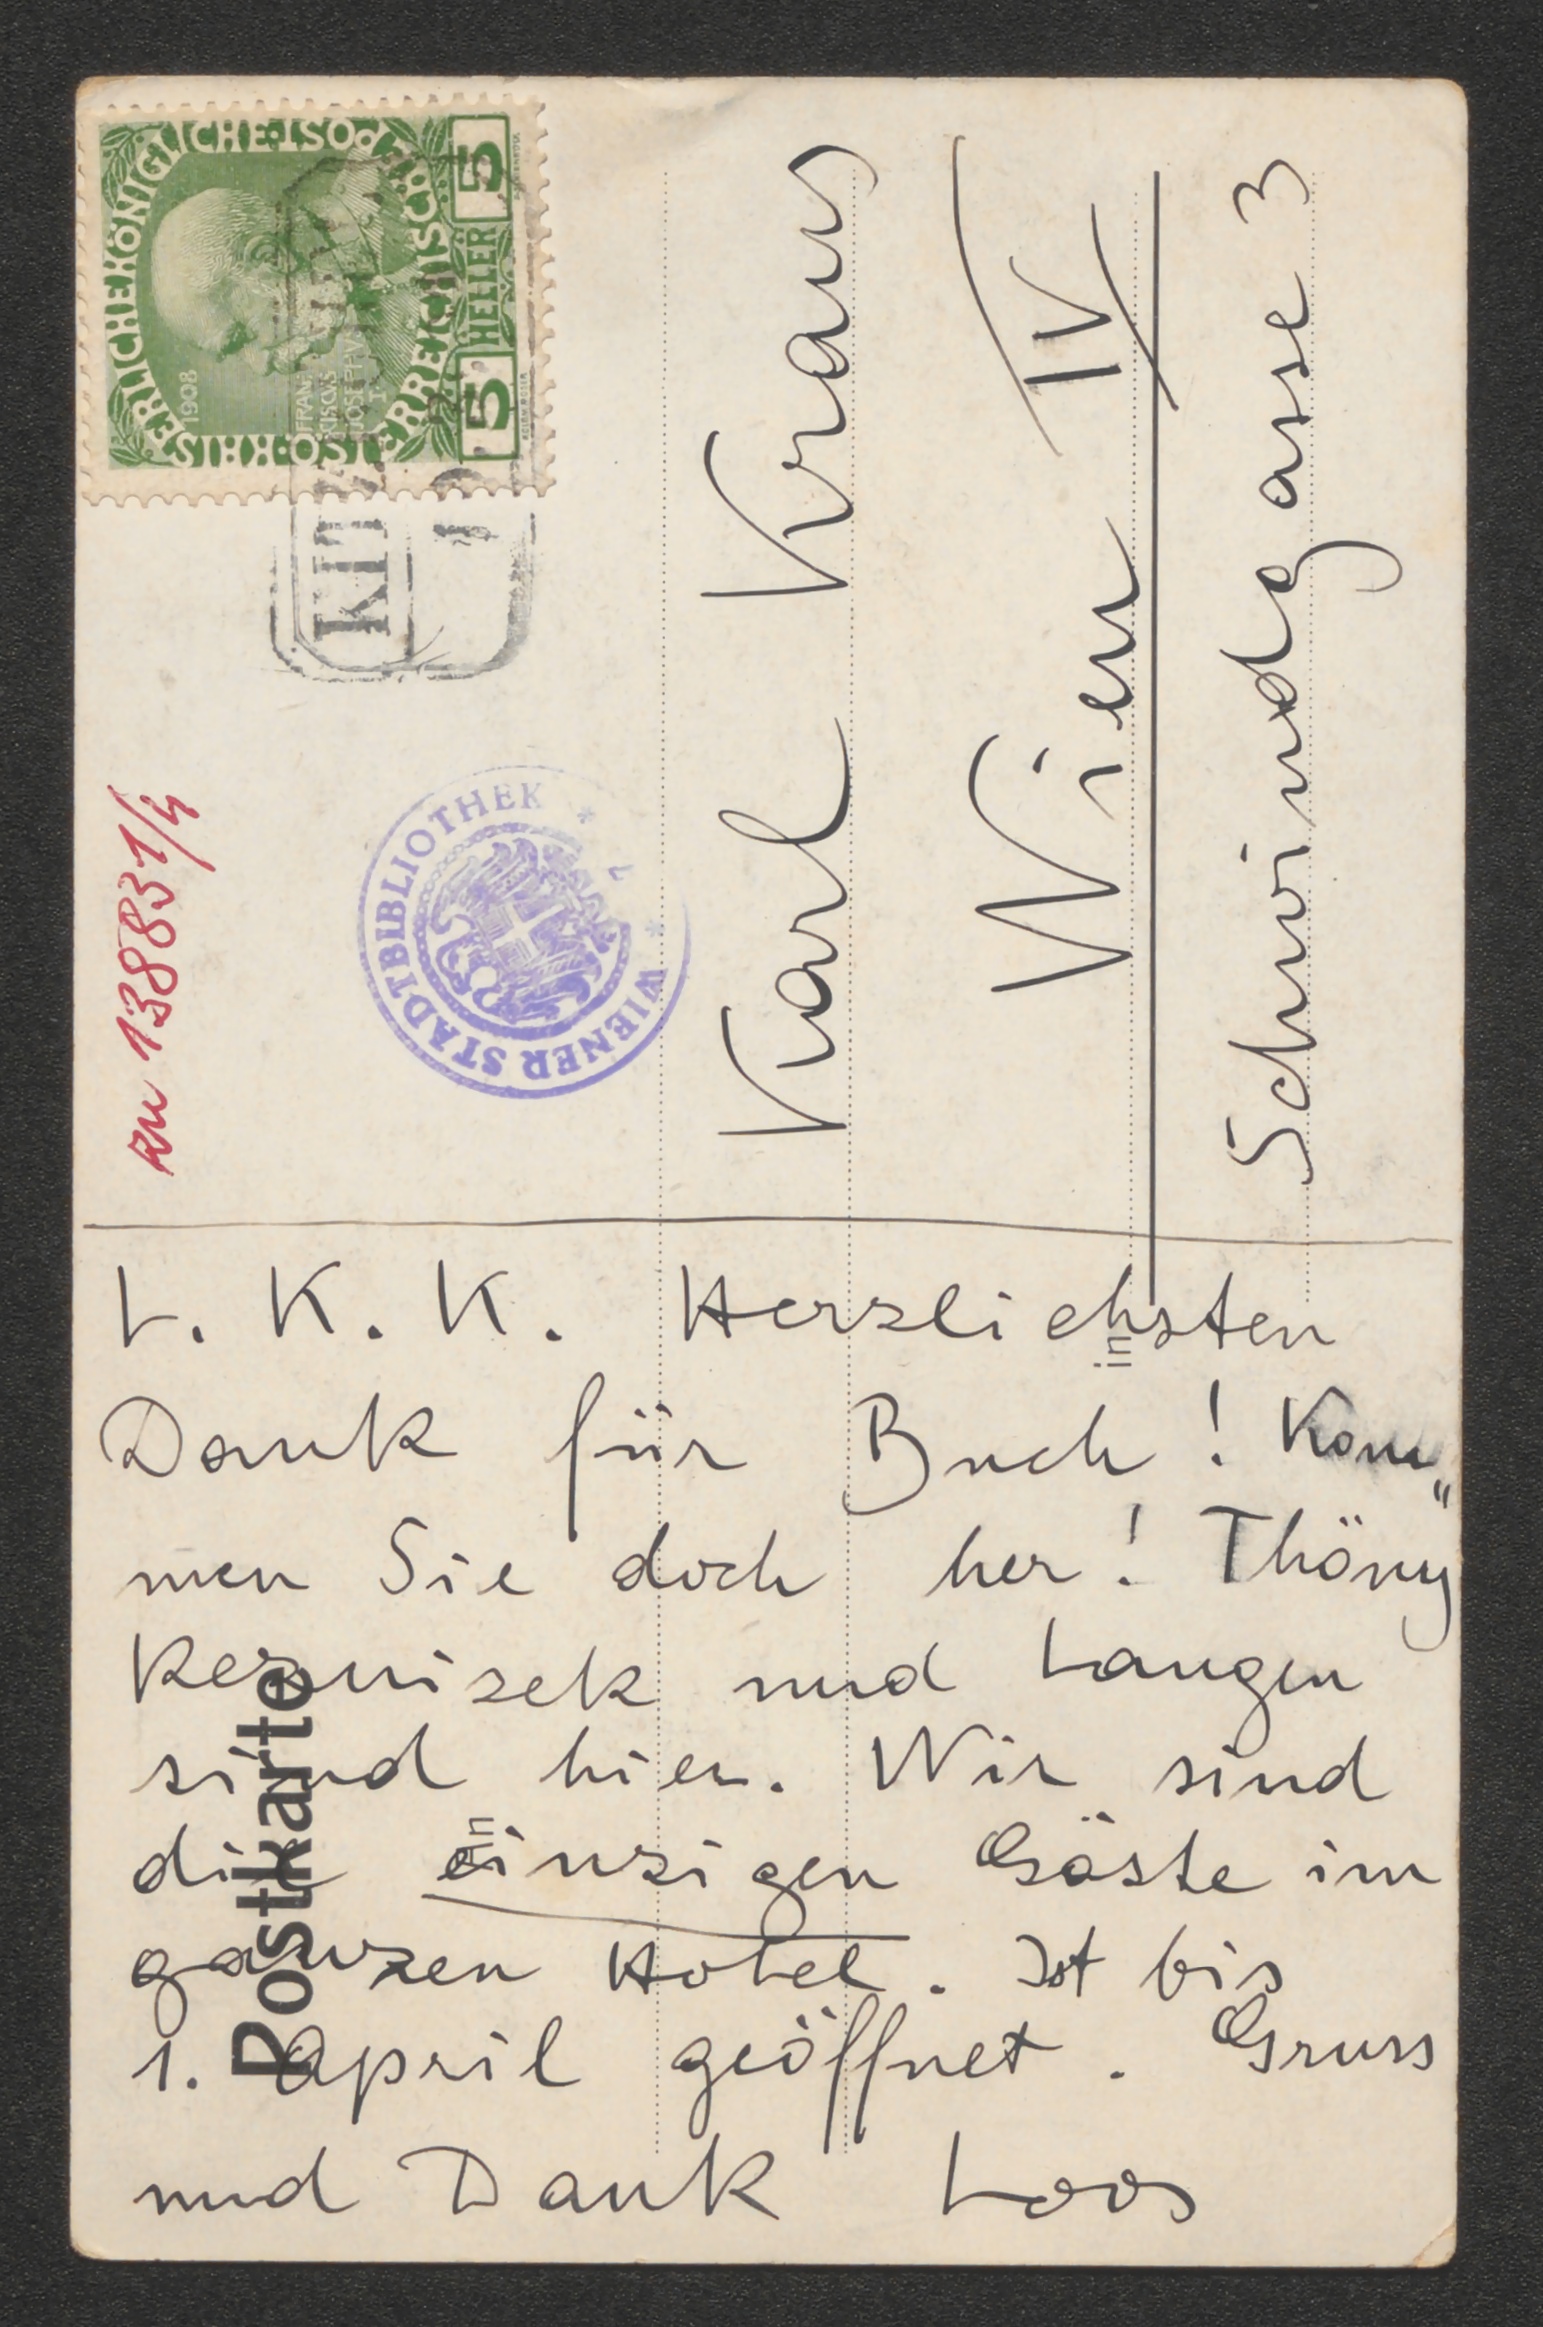 KAISERLICHEKÖNIGLICHE·POST
ÖSTERREICHISCHE
1908
FRAN
CISCVS
IOSEPH
I
5 HELLER 5
KIT
zu 138831/4
WIENER STADTBIBLIOTHEK
Karl Kraus
Wien IV
Schwindgasse 3
Postkarte
An
in
L. K. K. Herzlichsten
Dank für Buch! Kom„
men Sie doch her! Thöny
Reznisek und Langen
sind hier. Wir sind
die einzigen Gäste im
ganzen Hotel. Ist bis
1. April geöffnet. Gruss
und Dank Loos